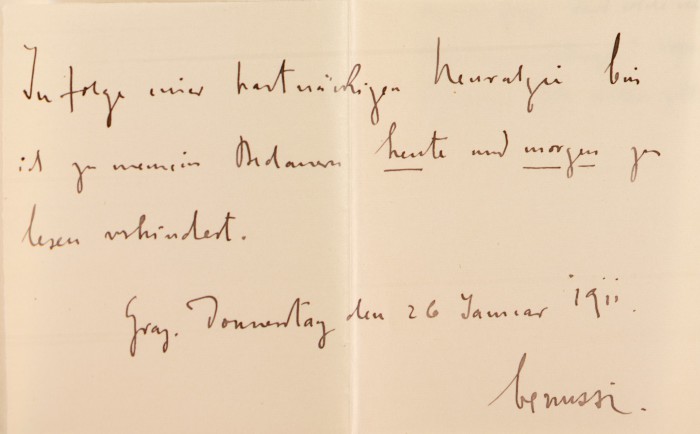 In folge einer hartnäckigen Neuralgie bin
ich zu meinem Bedauern heute und morgen zu
lesen verhindert.
Graz. Donnerstag den 26 Januar 1911.
Benussi.